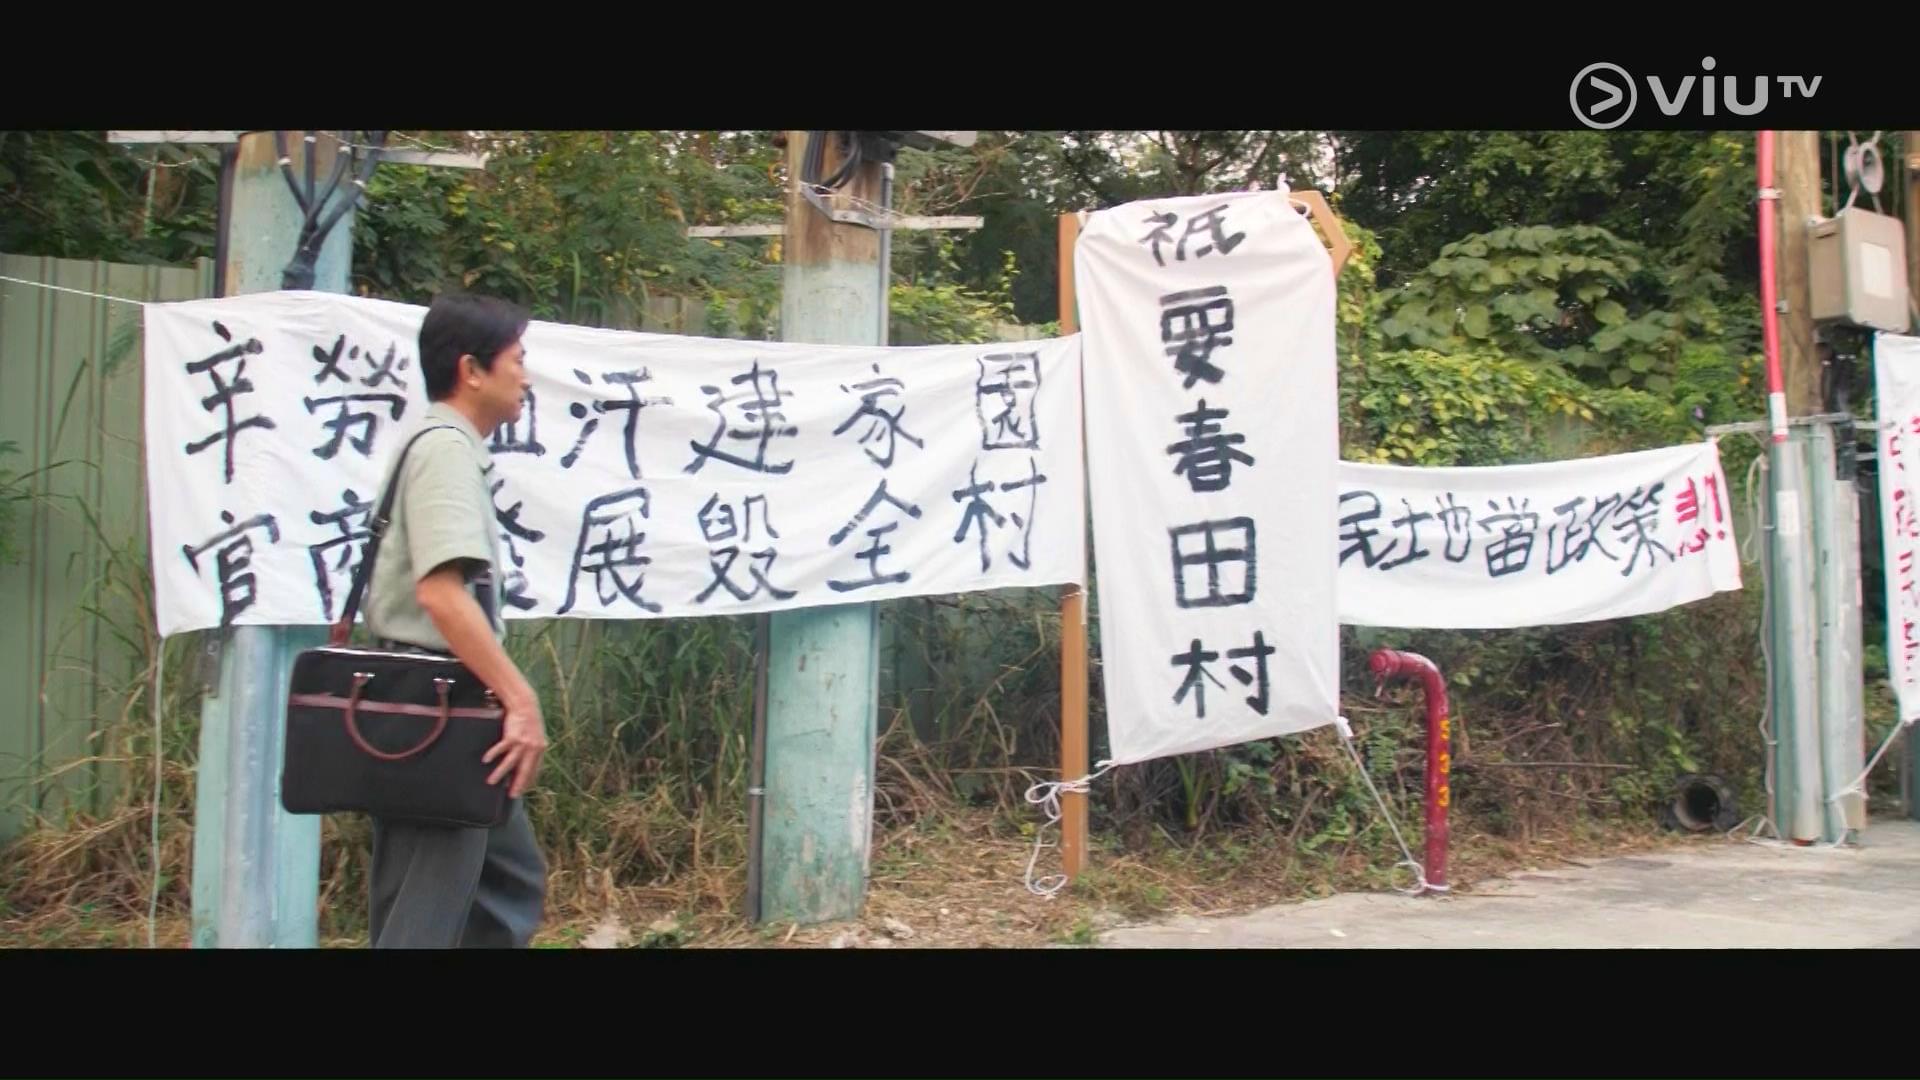 viuTV
辛勞血汗建家園
官商發展毀全村
祇要春田村
民土地當政策悲!
533